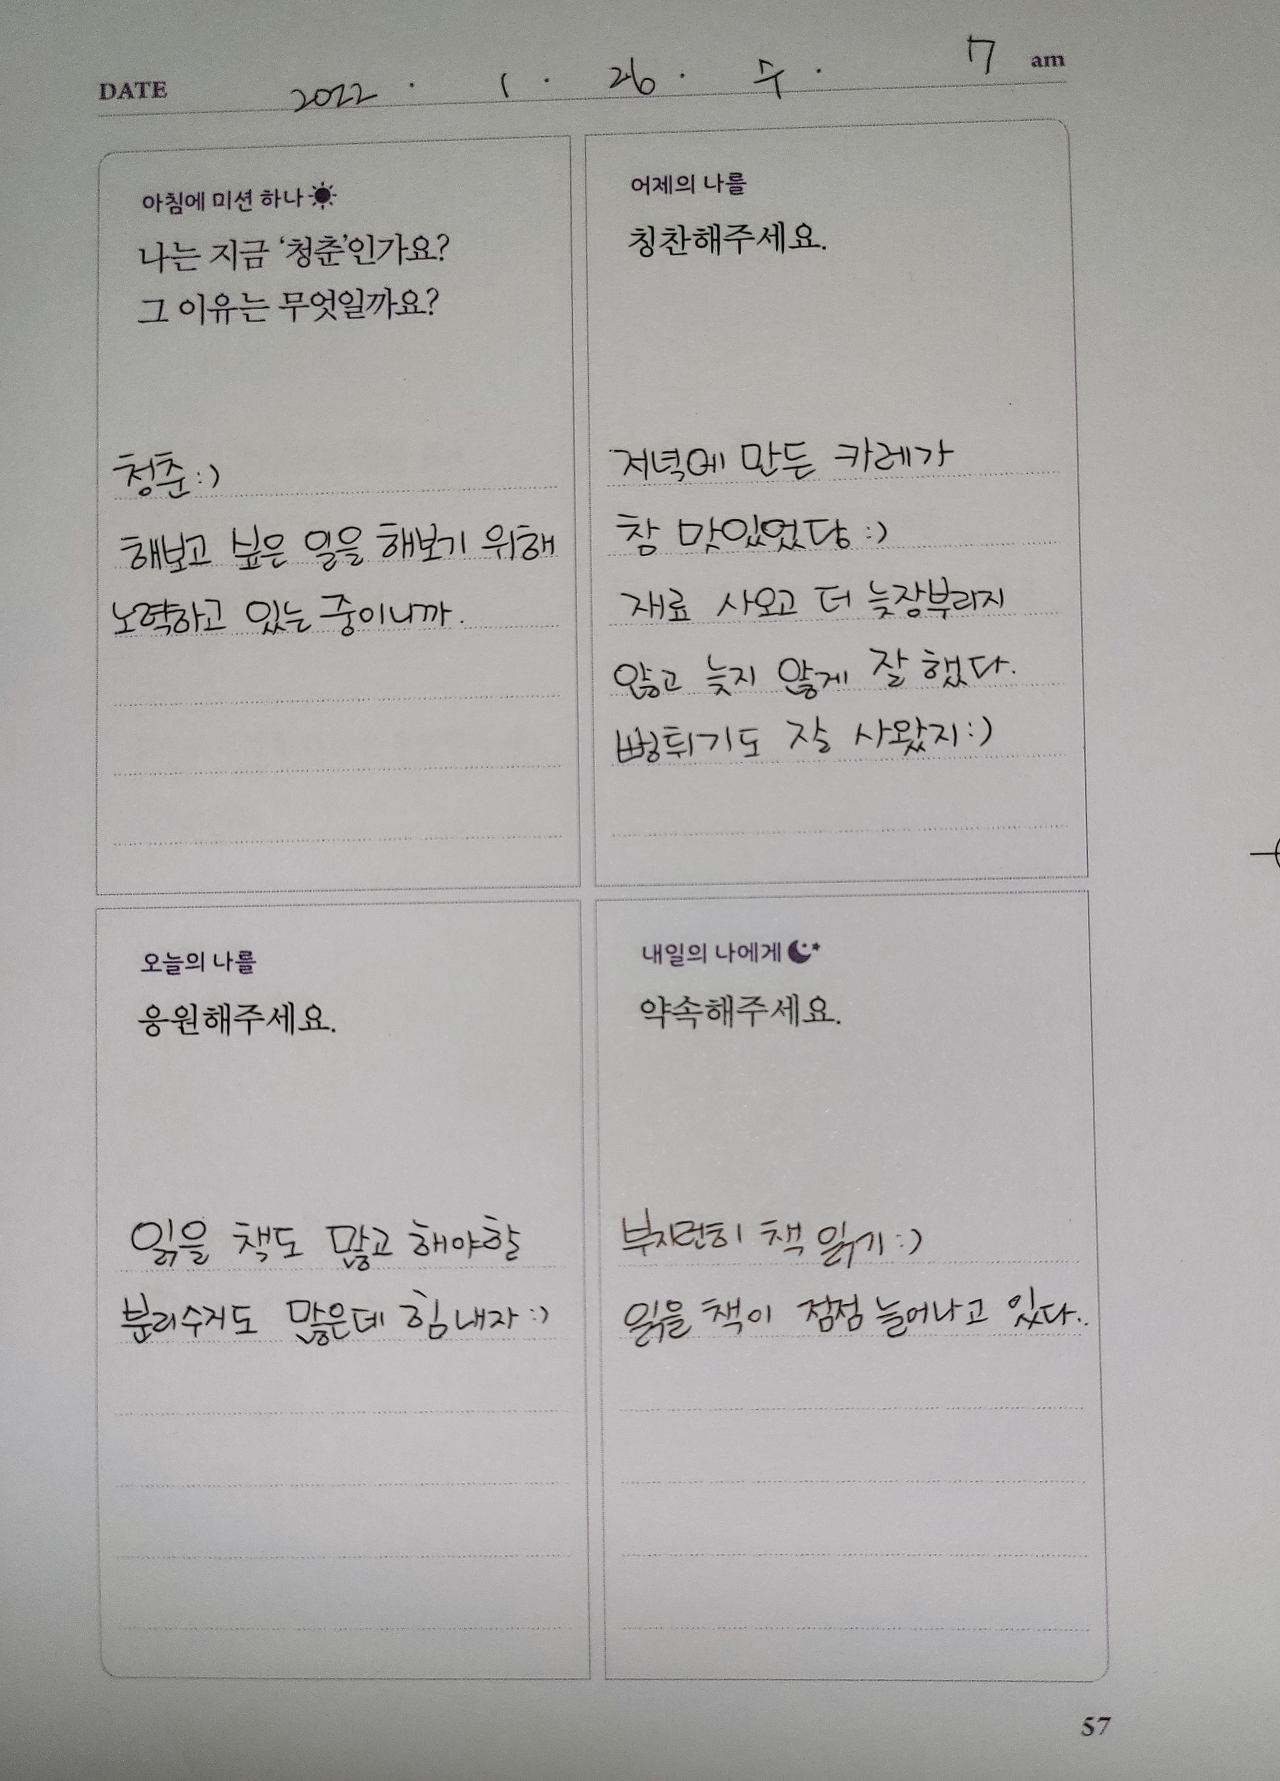 DATE 2022 . 1 . 26 . 수 . 7 am
아침에 미션 하나
나는 지금 '청춘'인가요?
그 이유는 무엇일까요?
청춘:)
해보고 싶은 일을 해보기 위해
노력하고 있는 중이니까.
어제의 나를
칭찬해주세요.
저녁에 만든 카레가
참 맛있었당:)
재료 사오고 더 늦장부리지
않고 늦지 않게 잘 했다.
뻥튀기도 잘 사왔지:)
오늘의 나를
응원해주세요.
읽을 책도 많고 해야할
분리수거도 많은데 힘내자:)
내일의 나에게
약속해주세요.
부지런히 책 읽기:)
읽을 책이 점점 늘어나고 있다..
57